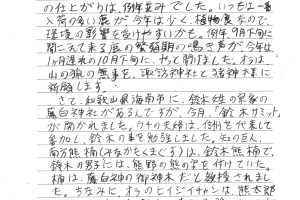 の仕上がりは、例年並みでした。いつも一番
入荷の多い鹿が今年は少く、植物食なので、
環境の影響を受けやすいかも。例年、9月下旬に
聞こえて来る鹿の繁殖期の鳴き声が今年は
1ヶ月遅れの10月下旬に、やって聞けました。オラは、
山の狼の無事を、諏訪神社と猪神様に
祈願します。
さて、和歌山県海南市に、鈴木姓の家の
藤白神社があるんですが、今月、「鈴木サミット」
が開かれました。ウチの夫婦は、信州を代表して
参加し、鈴木の事を勉強しました。知の巨人、
南方熊楠(みなかたくまぐす)は、鈴木熊楠で、
鈴木の男子には、熊野の熊の字を付けていた。
楠は、藤白神の御神木だと披露されまし
た。ちなみに、オラのヒイジイチャンは、熊太郎